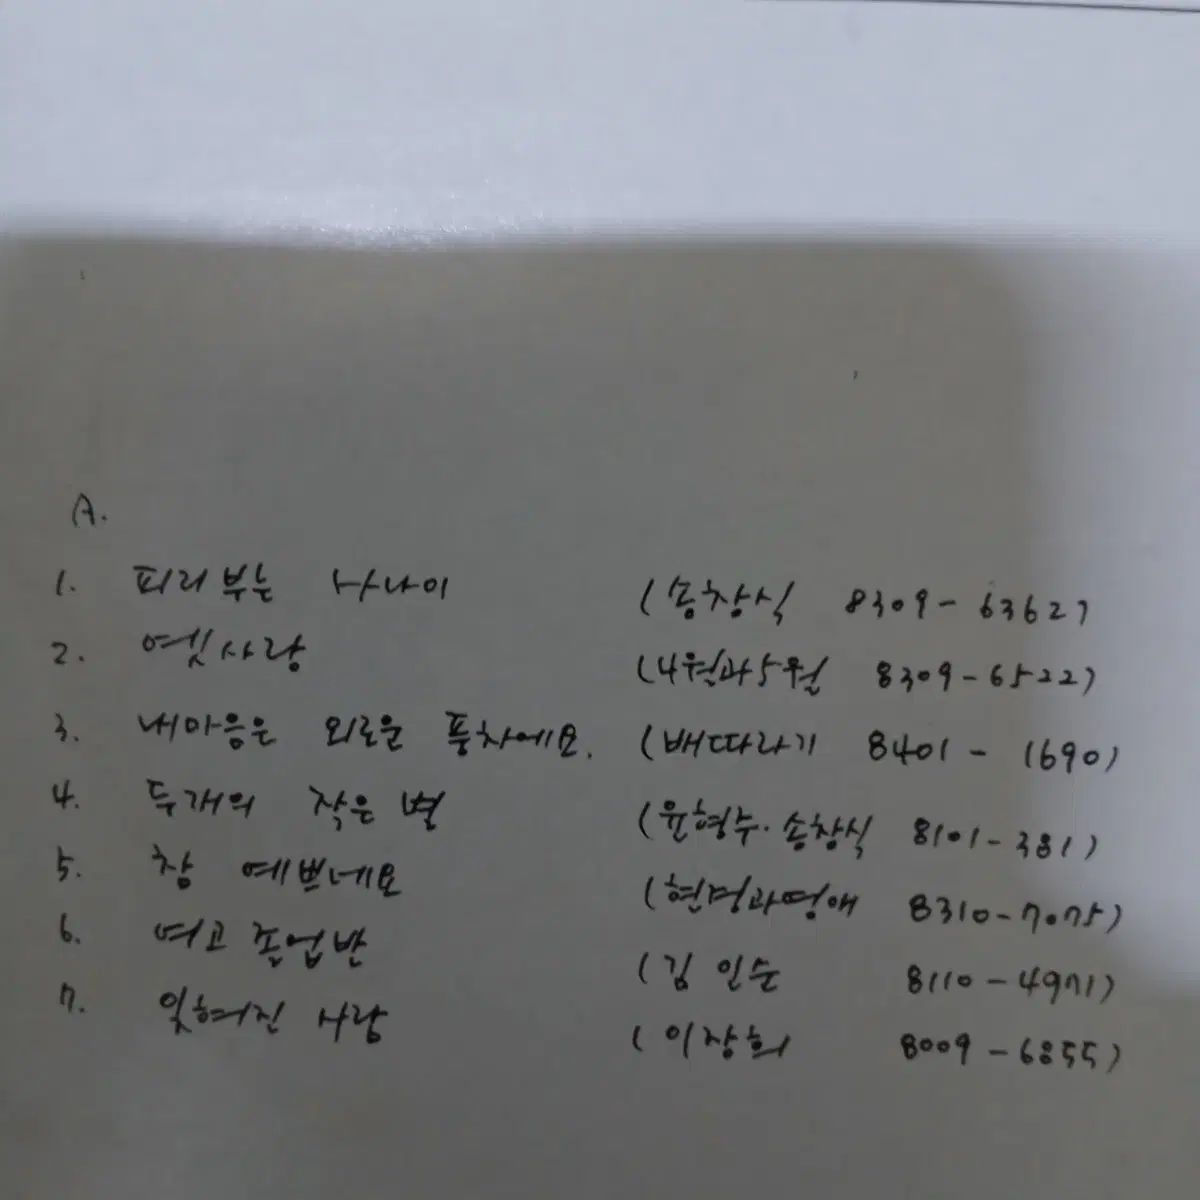 A.
1. 피리부는 사나이 (송창식 8309-6362)
2. 옛사랑 (4월과5월 8309-6522)
3. 내마음은 외로운 풍차예요. (배따라기 8401-1690)
4. 두개의 작은 별 (윤형주·송창식 8101-381)
5. 참 예쁘네요 (현경과영애 8310-7075)
6. 여고 졸업반 (김 인순 8110-4971)
7. 잊혀진 사랑 (이장희 8009-6855)